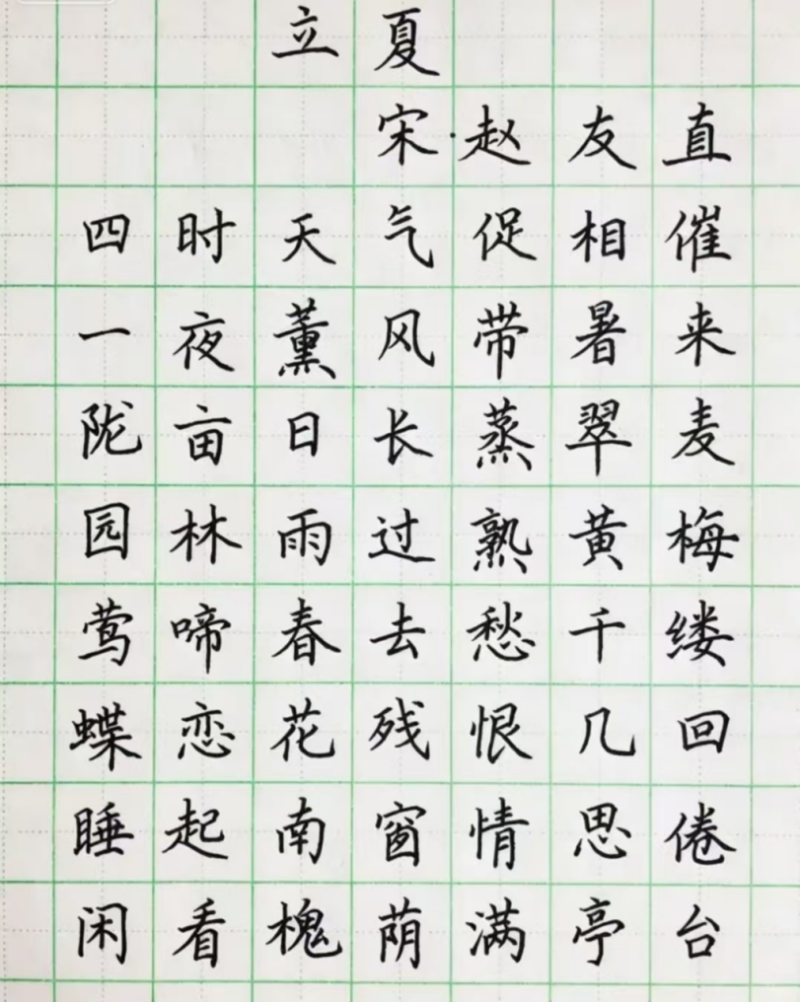 立夏
宋·赵友直
四时天气促相催
一夜薰风带暑来
陇亩日长蒸翠麦
园林雨过熟黄梅
莺啼春去愁千缕
蝶恋花残恨几回
睡起南窗情思倦
闲看槐荫满亭台